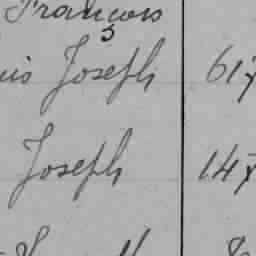 François
uis Joseph 617
Joseph 147